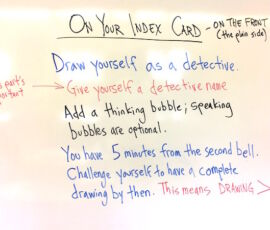 ON YOUR INDEX CARD - ON THE FRONT
(the plain side)
Draw yourself as a detective.
part's
Give yourself a detective name
Add a thinking bubble; speaking
bubbles are optional.
You have 5 minutes from the second bell.
Challenge yourself to have a complete
drawing by then. This means DRAWING >